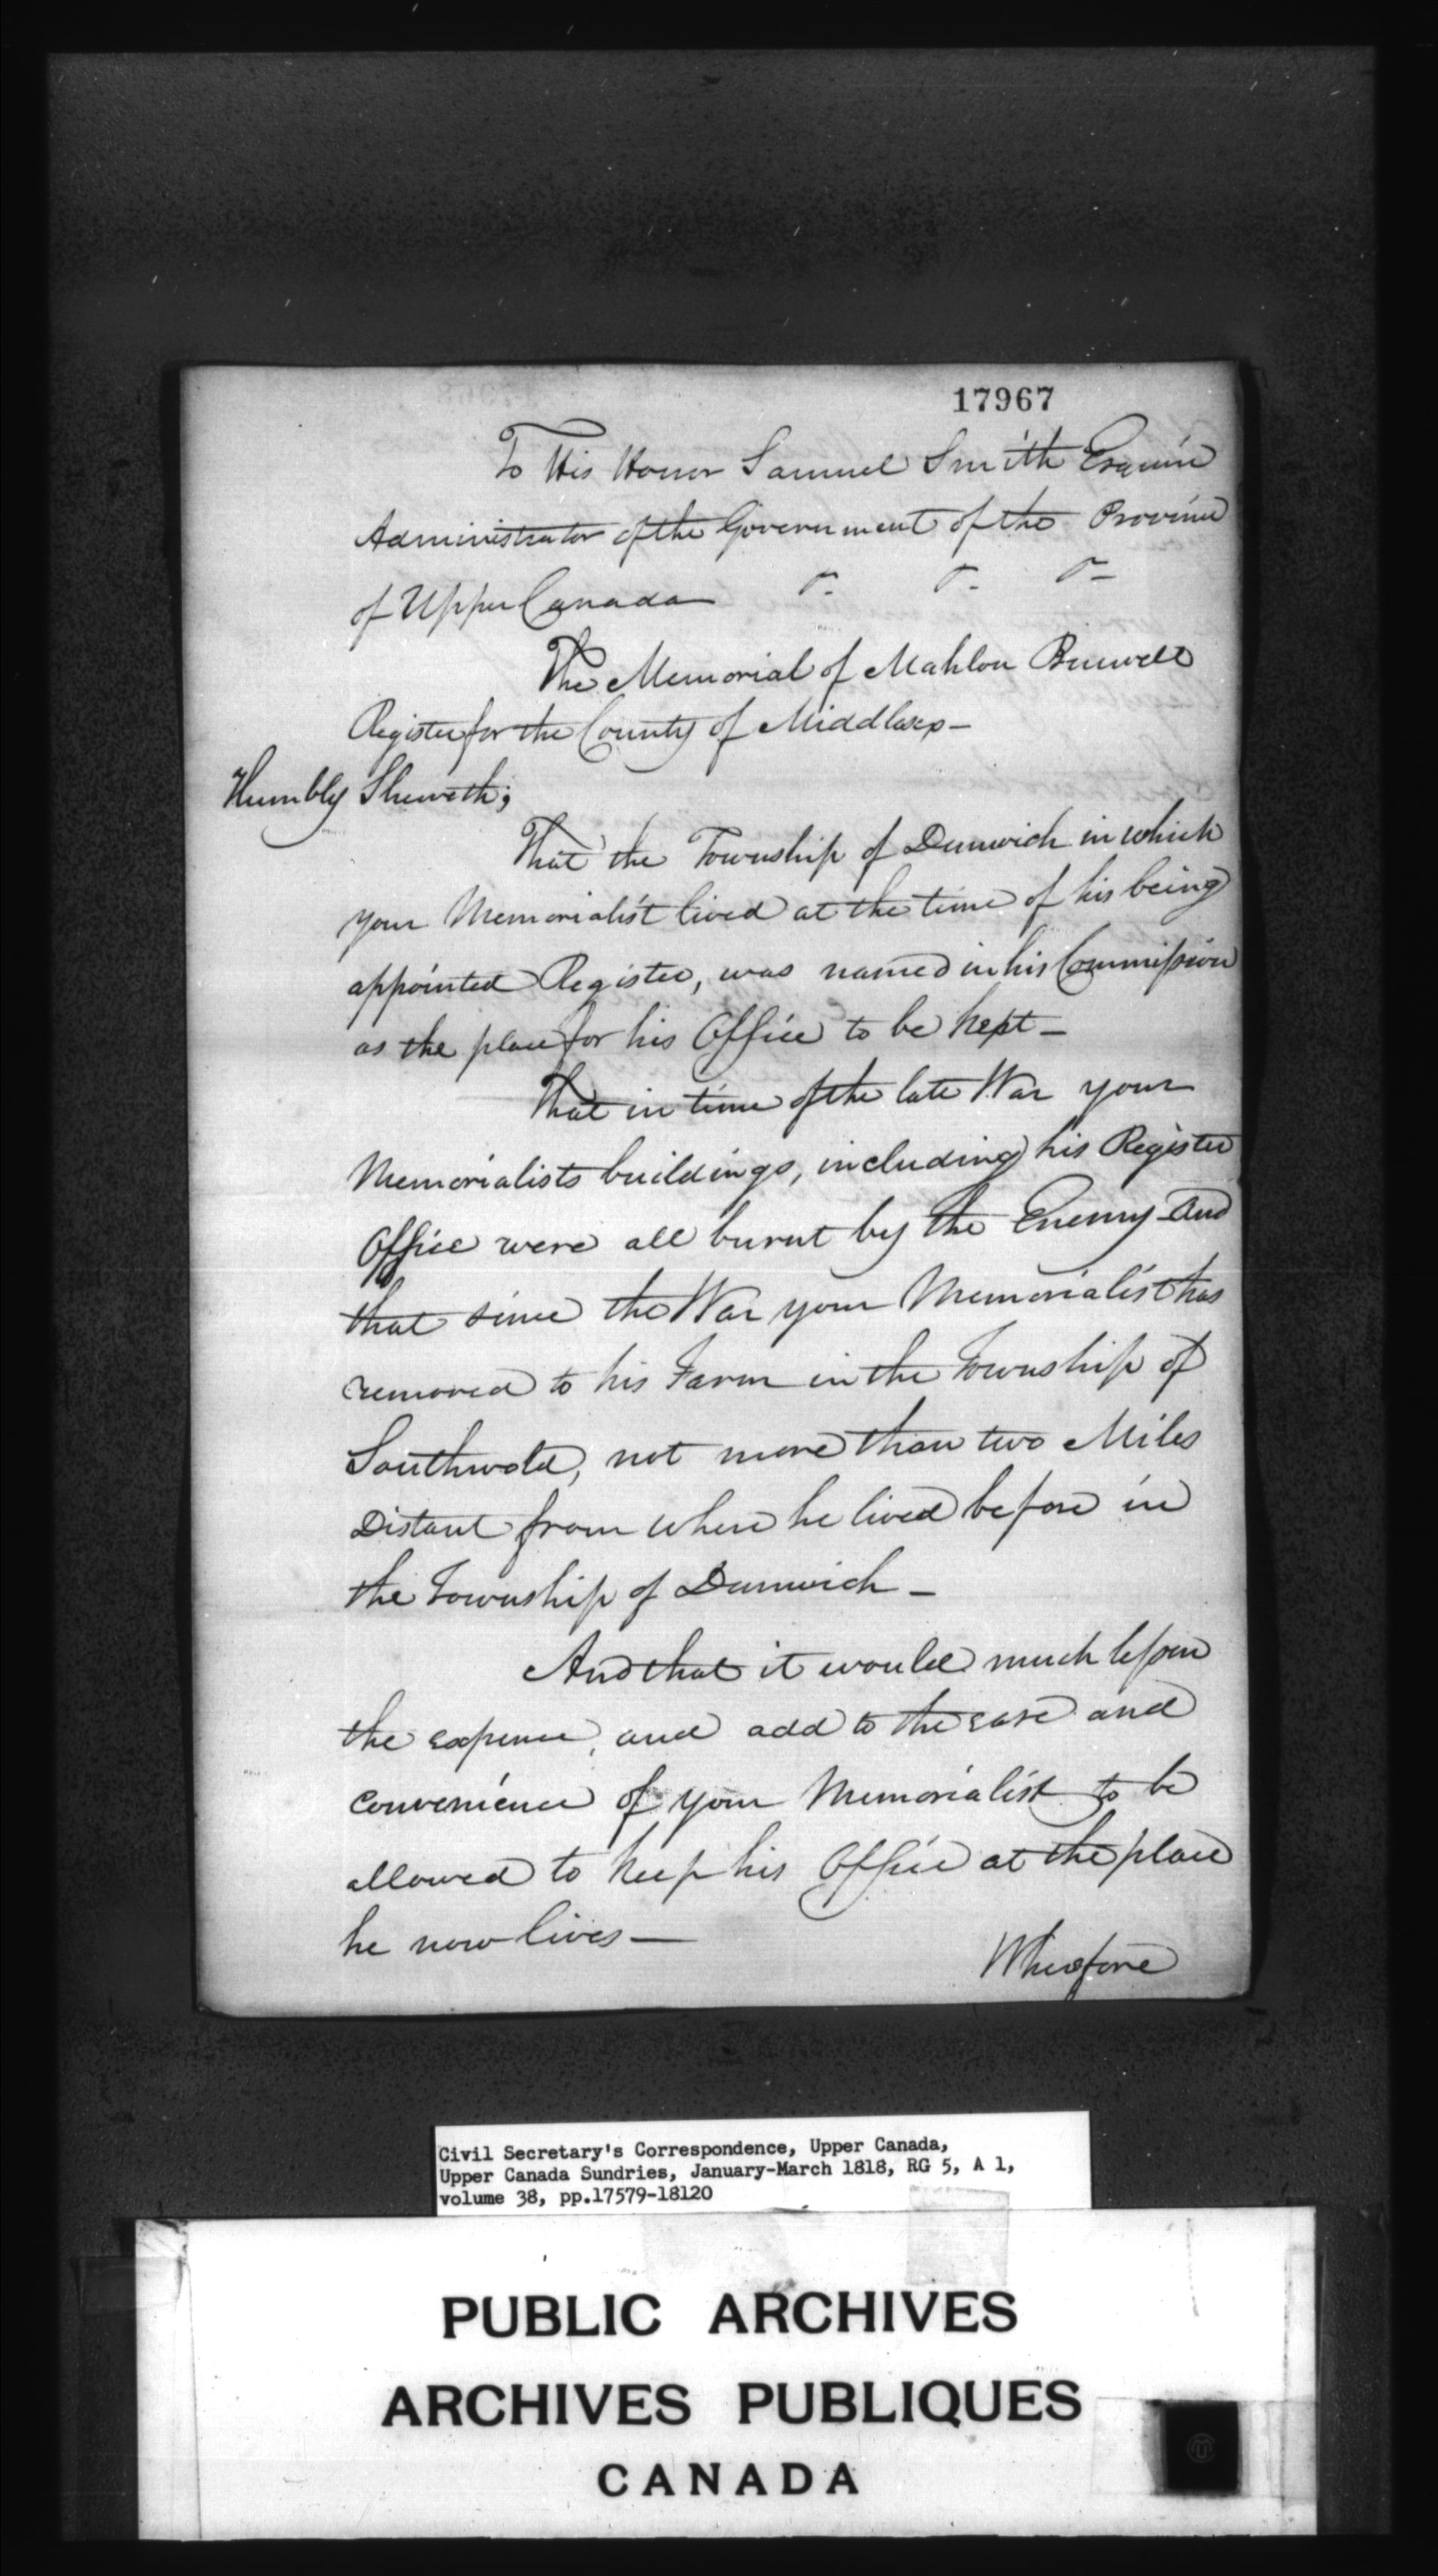 17967
To His Honor Samuel Smith Esquire
Administrator of the Government of the Province
of Upper Canada
The Memorial of Mahlon Burwell
Register for the County of Middlesex —
Humbly Sheweth;
That the Township of Dunwich in which
your Memorialist lived at the time of his being
appointed Register, was named in his Commission
as the place for his Office to be kept —
That in time of the late War your
Memorialists buildings, including his Register
Office were all burnt by the Enemy And
that since the War your Memorialist has
removed to his Farm in the Township of
Southwold, not more than two Miles
Distant from where he lived before in
the Township of Dunwich —
And that it would much lessen
the expence, and add to the ease and
convenience of your Memorialist to be
allowed to keep his Office at the place
he now lives —
Wherefore
Civil Secretary's Correspondence, Upper Canada,
Upper Canada Sundries, January-March 1818, RG 5, A 1,
volume 38, pp.17579-18120
PUBLIC ARCHIVES
ARCHIVES PUBLIQUES
CANADA